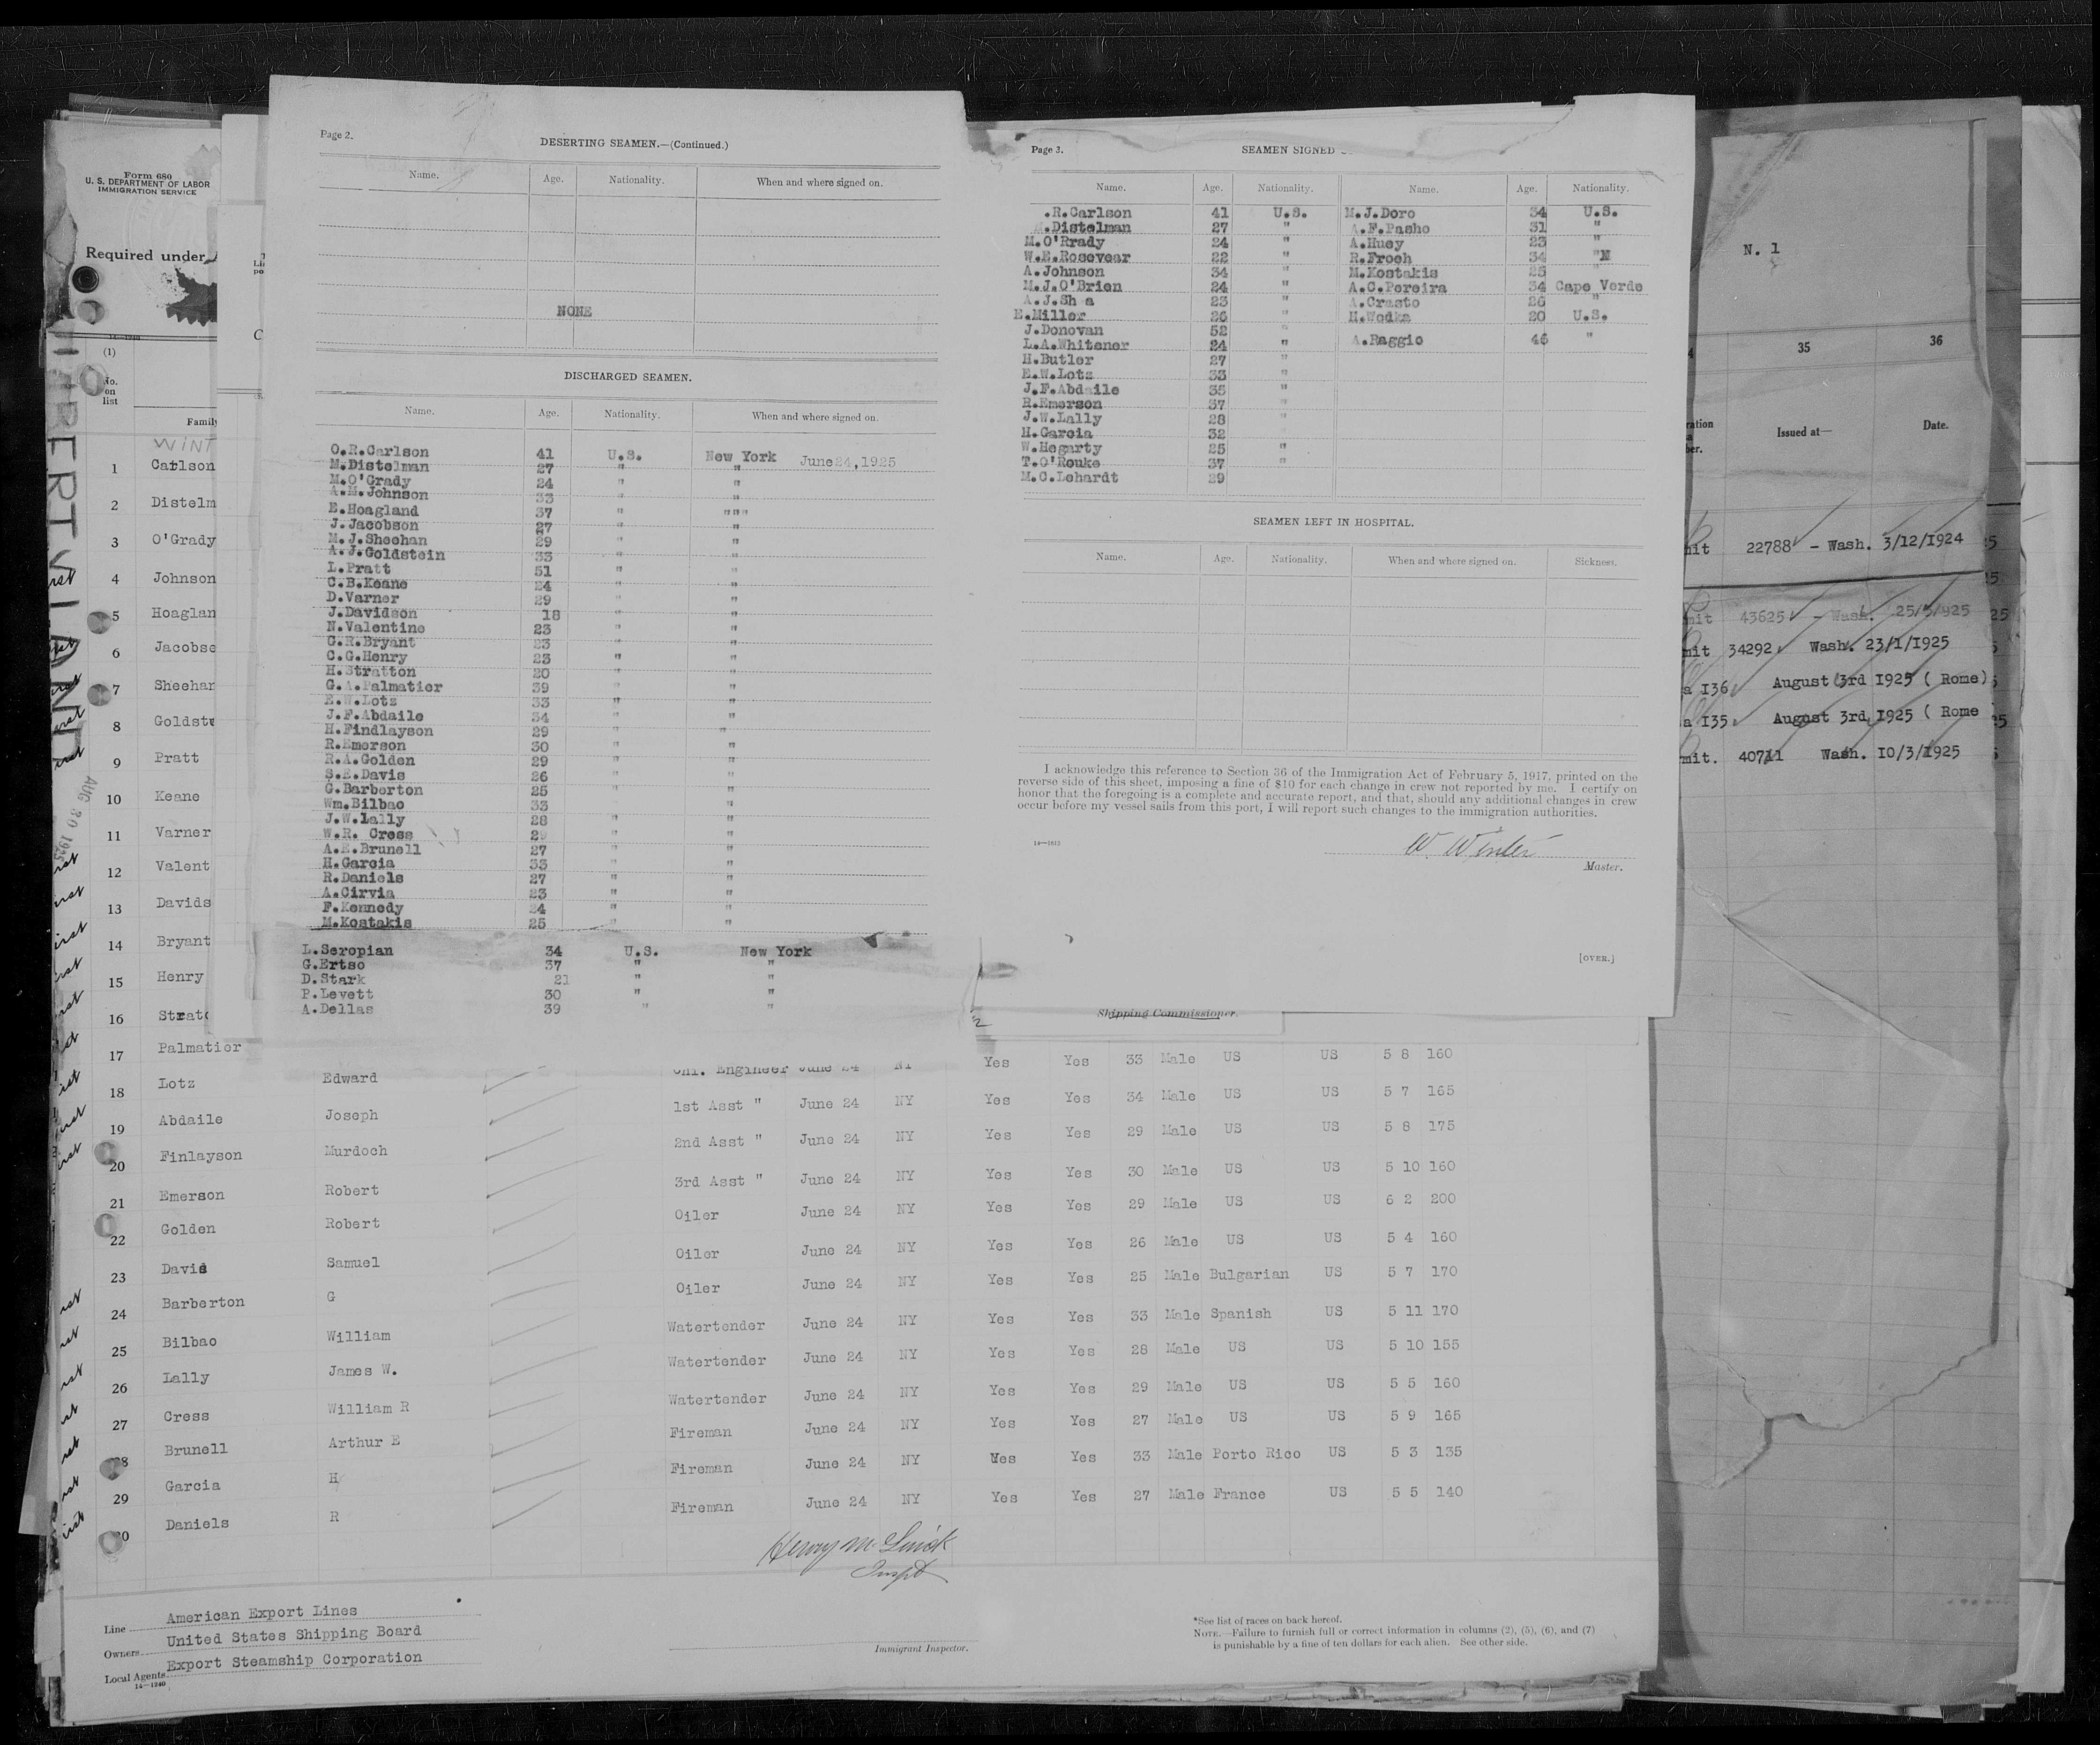 Form 680
U. S. DEPARTMENT OF LABOR
IMMIGRATION SERVICE
Required under
(1)
No.
on
list
Family
WINT
1 Carlson
2 Distelm
3 O'Grady
4 Johnson
5 Hoaglan
6 Jacobse
7 Sheehan
8 Goldste
9 Pratt
10 Keane
11 Varner
12 Valent
13 Davids
14 Bryant
15 Henry
16 Stratt
AUG 30 1925
Page 2.
DESERTING SEAMEN.—(Continued.)
Name. Age. Nationality. When and where signed on.
NONE
DISCHARGED SEAMEN.
Name. Age. Nationality. When and where signed on.
O.R.Carlson 41 U.S. New York June 24, 1925
M.Distelman 27 " "
M.O'Grady 24 " "
A.M.Johnson 33 " "
E.Hoagland 37 " """
J.Jacobson 27 " "
M.J.Sheehan 29 " "
A.J.Goldstein 33 " "
L.Pratt 51 " "
C.B.Keane 24 " "
D.Varner 29 " "
J.Davidson 18 " "
N.Valentine 23 " "
C.R.Bryant 23 " "
C.G.Henry 23 " "
H.Stratton 20 " "
G.A.Palmatier 39 " "
E.W.Lotz 33 " "
J.F.Abdaile 34 " "
H.Findlayson 29 " "
R.Emerson 30 " "
R.A.Golden 29 " "
S.E.Davis 26 " "
G.Barberton 25 " "
Wm.Bilbao 33 " "
J.W.Lally 28 " "
W.R. Cress 29 " "
A.E.Brunell 27 " "
H.Garcia 33 " "
R.Daniels 27 " "
A.Cirvia 23 " "
F.Kennedy 24 " "
M.Kostakis 25 " "
L.Seropian 34 U.S. New York
G.Ertso 37 " "
D.Stark 21 " "
P.Levett 30 " "
A.Dellas 39 " "
Page 3.
SEAMEN SIGNED
Name. Age. Nationality. Name. Age. Nationality.
.R.Carlson 41 U.S. M.J.Doro 34 U.S.
.Distelman 27 " A.F.Pasho 31 "
M.O'Rrady 24 " A.Huey 23 "
W.E.Rosevear 22 " R.Froeh 34 "N
A.Johnson 34 " M.Kostakis 25 "
M.J.O'Brien 24 " A.C.Pereira 34 Cape Verde
A.J.Sh a 23 " A.Crasto 26 "
E.Miller 26 " H.Wodka 20 U.S.
J.Donovan 52 "
L.A.Whitener 24 " A.Raggio 46 "
H.Butler 27 "
E.W.Lotz 33 "
J.F.Abdaile 35 "
R.Emerson 37 "
J.W.Lally 28 "
H.Garcia 32 "
W.Hegarty 25 "
T.O'Rouke 37 "
M.C.Lehardt 29
SEAMEN LEFT IN HOSPITAL.
Name. Age. Nationality. When and where signed on. Sickness.
I acknowledge this reference to Section 36 of the Immigration Act of February 5, 1917, printed on the
reverse side of this sheet, imposing a fine of $10 for each change in crew not reported by me. I certify on
honor that the foregoing is a complete and accurate report, and that, should any additional changes in crew
occur before my vessel sails from this port, I will report such changes to the immigration authorities.
W. Winter
Master.
[OVER.]
Shipping Commissioner.
N. 1
35 36
Issued at— Date.
22788 - Wash. 3/12/1924
43625 - Wash. 25/5/1925
34292 Wash. 23/1/1925
a I36 August 3rd 1925 ( Rome)
a I35 August 3rd 1925 ( Rome
mit. 40711 Wash. 10/3/1925
17 Palmatier
18 Lotz Edward Chf. Engineer June 24 NY Yes Yes 33 Male US US 5 8 160
19 Abdaile Joseph 1st Asst " June 24 NY Yes Yes 34 Male US US 5 7 165
20 Finlayson Murdoch 2nd Asst " June 24 NY Yes Yes 29 Male US US 5 8 175
21 Emerson Robert 3rd Asst " June 24 NY Yes Yes 30 Male US US 5 10 160
22 Golden Robert Oiler June 24 NY Yes Yes 29 Male US US 6 2 200
23 Davis Samuel Oiler June 24 NY Yes Yes 26 Male US US 5 4 160
24 Barberton G Oiler June 24 NY Yes Yes 25 Male Bulgarian US 5 7 170
25 Bilbao William Watertender June 24 NY Yes Yes 33 Male Spanish US 5 11 170
26 Lally James W. Watertender June 24 NY Yes Yes 28 Male US US 5 10 155
27 Cress William R Watertender June 24 NY Yes Yes 29 Male US US 5 5 160
28 Brunell Arthur E Fireman June 24 NY Yes Yes 27 Male US US 5 9 165
29 Garcia H Fireman June 24 NY Yes Yes 33 Male Porto Rico US 5 3 135
30 Daniels R Fireman June 24 NY Yes Yes 27 Male France US 5 5 140
Line American Export Lines
Owners United States Shipping Board
Local Agents Export Steamship Corporation
14—1240
Immigrant Inspector.
*See list of races on back hereof.
NOTE.—Failure to furnish full or correct information in columns (2), (5), (6), and (7)
is punishable by a fine of ten dollars for each alien. See other side.